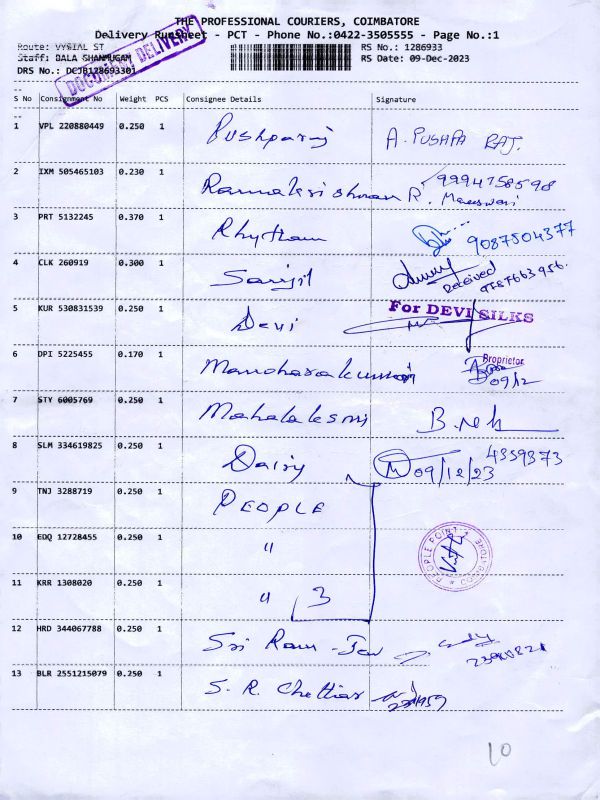 THE PROFESSIONAL COURIERS, COIMBATORE
Delivery Runsheet - PCT - Phone No.:0422-3505555 - Page No.:1
Route: VYSIAL ST
RS No.: 1286933
Staff: BALA SHANMUGAM
RS Date: 09-Dec-2023
DRS No.: DCJB128693301
DOCUMENT DELIVERY
S No Consignment No Weight PCS Consignee Details Signature
1 VPL 220880449 0.250 1 Pushparaj A. PUSHPA RAJ.
2 IXM 505465103 0.230 1 Ramakrishnan R. Maheswari
9994758598
3 PRT 5132245 0.370 1 Rhytham 9087504377
4 CLK 260919 0.300 1 Sanjit Received
5 KUR 530831539 0.250 1 Devi For DEVI SILKS
Proprietor
6 DPI 5225455 0.170 1 Manoharakumar 09/12
7 STY 6005769 0.250 1 Mahalaksmi
8 SLM 334619825 0.250 1 Daisy 09/12/23 4359373
9 TNJ 3288719 0.250 1 PEOPLE
10 EDQ 12728455 0.250 1 "
PEOPLE POINT
11 KRR 1308020 0.250 1 " 3
12 HRD 344067788 0.250 1 Sri Ram
13 BLR 2551215079 0.250 1 S. R. Chettiar
10